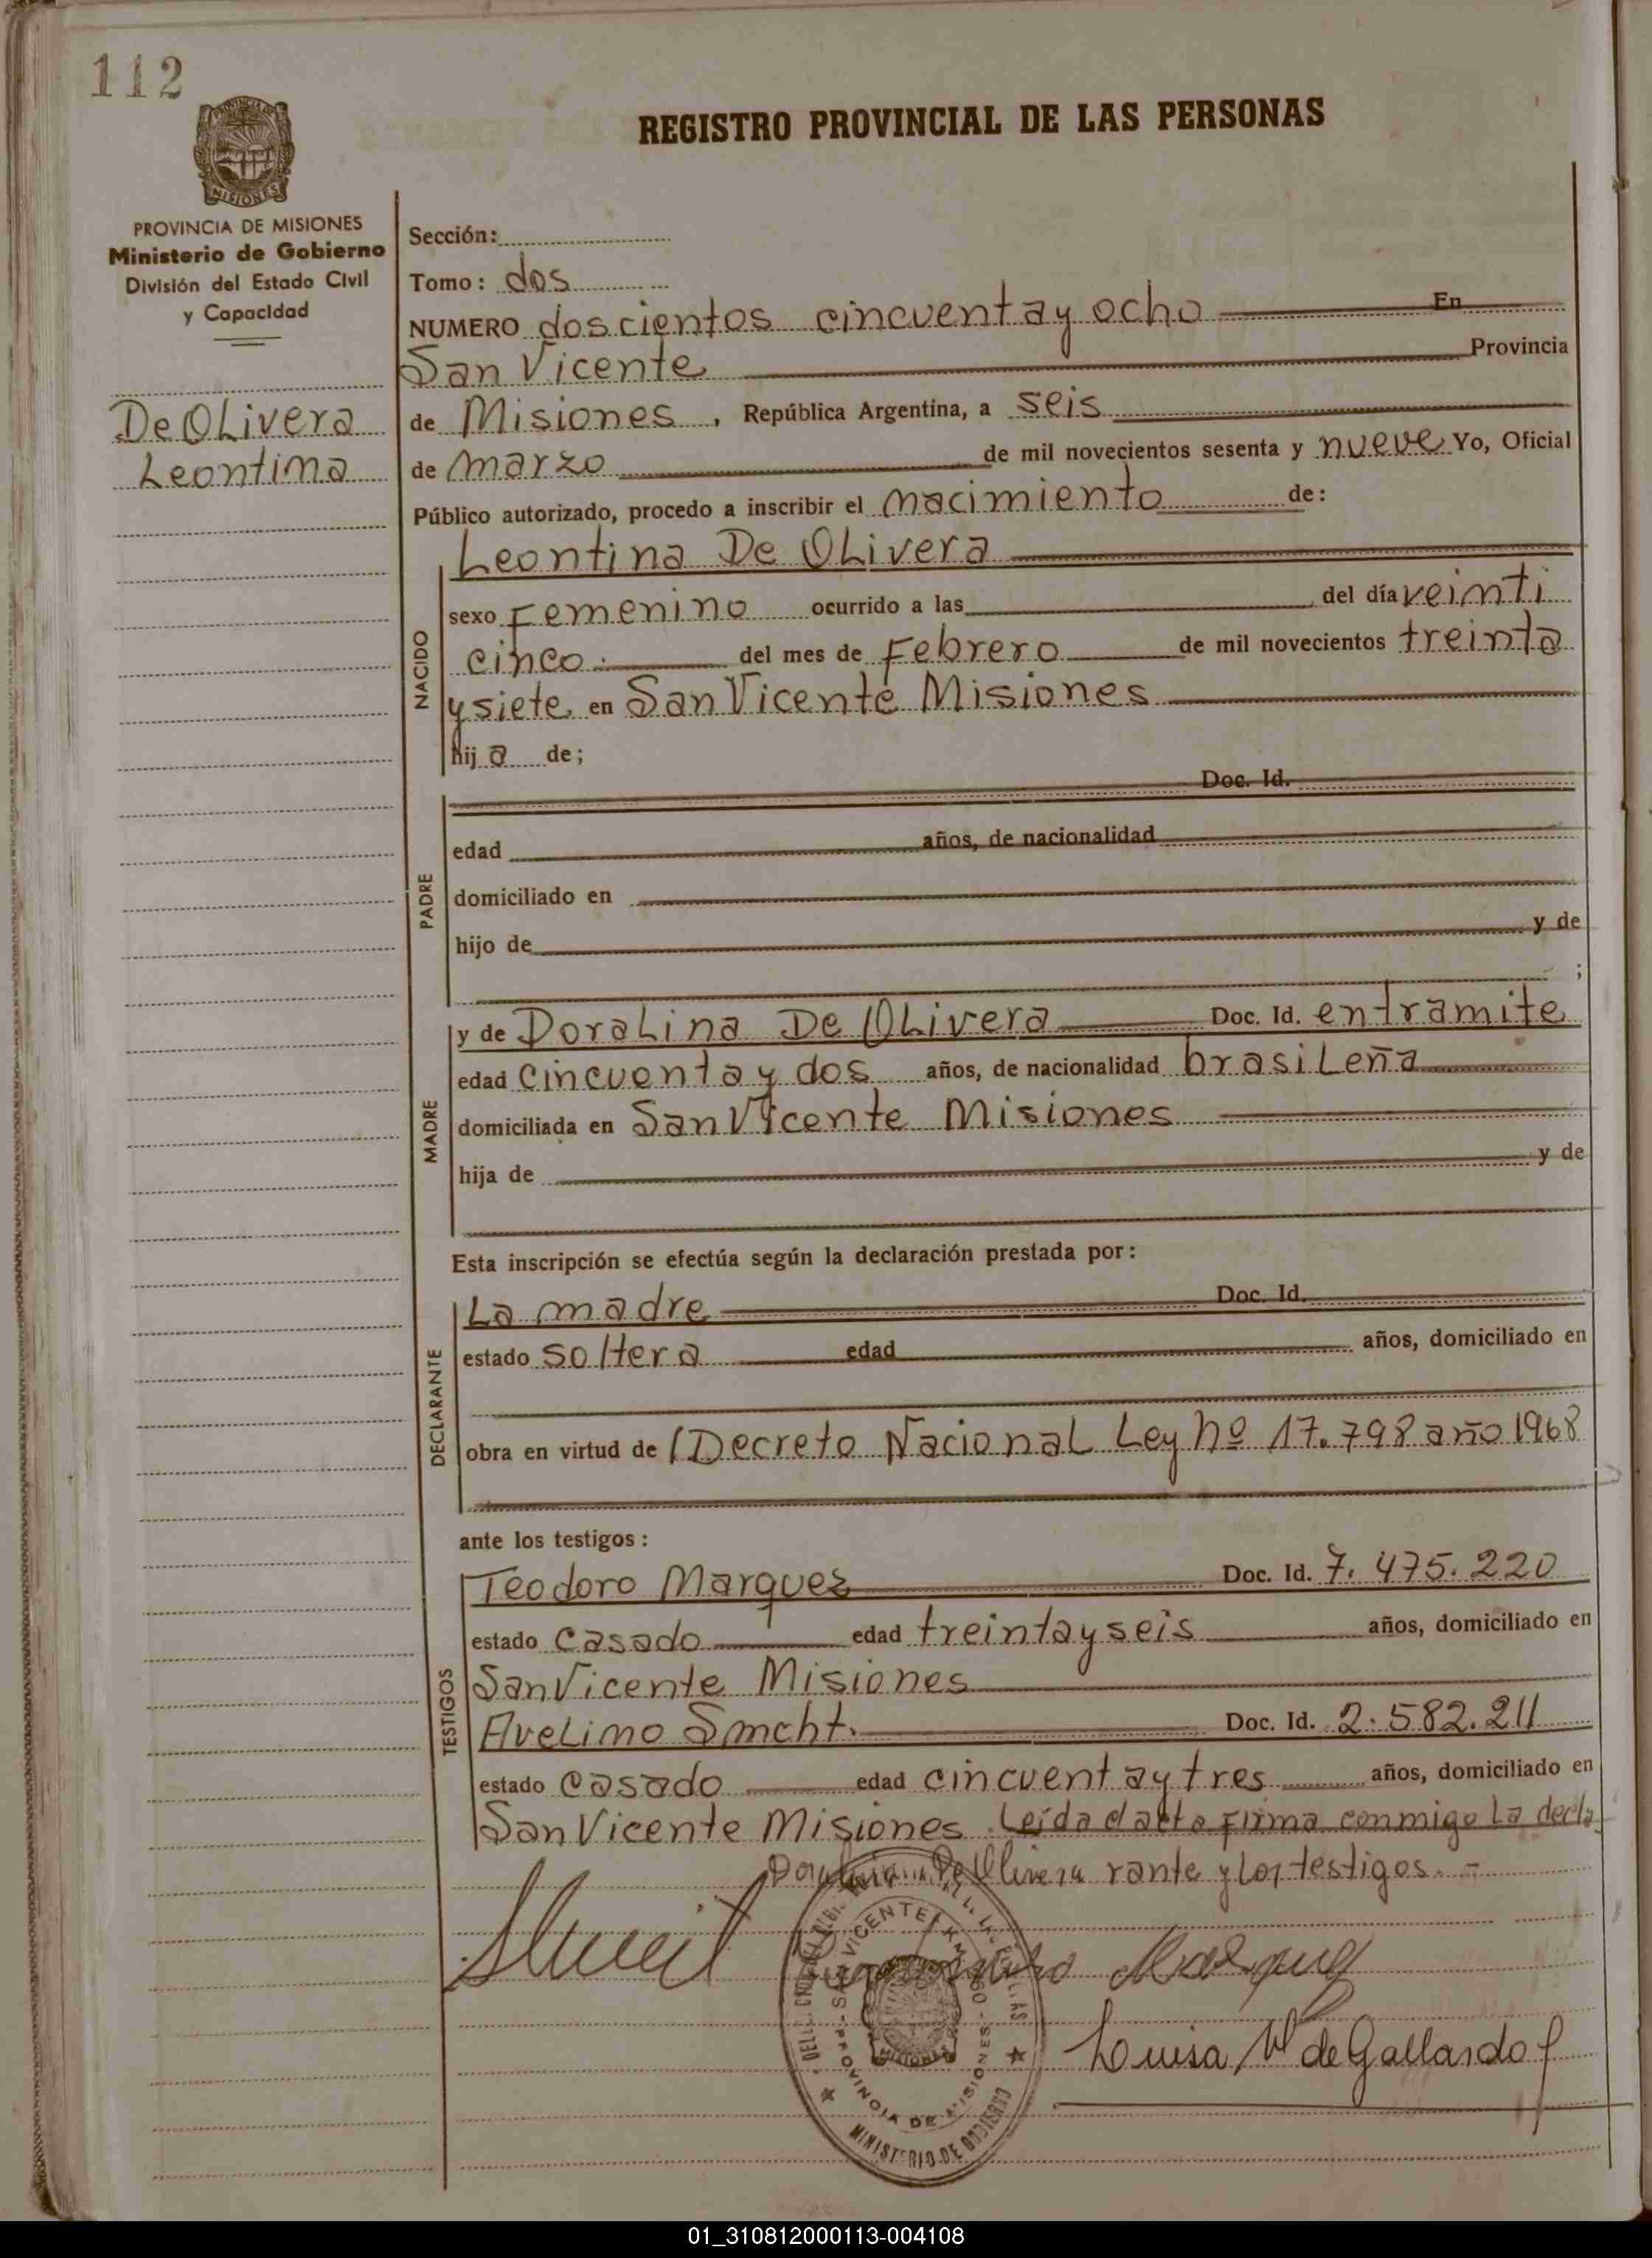 112
REGISTRO PROVINCIAL DE LAS PERSONAS
MISIONES
PROVINCIA DE MISIONES
Ministerio de Gobierno
División del Estado Civil
y Capacidad
De OLivera
Leontina
Sección:
Tomo: dos
NUMERO doscientos cincuenta y ocho En
San Vicente Provincia
de Misiones, República Argentina, a seis
de marzo de mil novecientos sesenta y nueve Yo, Oficial
Público autorizado, procedo a inscribir el nacimiento de:
NACIDO
Leontina De OLivera
sexo Femenino ocurrido a las del día veinti
cinco. del mes de Febrero de mil novecientos treinta
y siete en San Vicente Misiones
hij a de;
PADRE
Doc. Id.
edad años, de nacionalidad
domiciliado en
hijo de y de
;
MADRE
y de DoraLina De OLivera Doc. Id. en tramite
edad cincuenta y dos años, de nacionalidad brasiLeña
domiciliada en San Vicente Misiones
hija de y de
Esta inscripción se efectúa según la declaración prestada por:
DECLARANTE
La madre Doc. Id.
estado soltera edad años, domiciliado en
obra en virtud de Decreto NacionaL Ley Nº 17.798 año 1968
ante los testigos:
TESTIGOS
Teodoro Marquez Doc. Id. 7.475.220
estado casado edad treinta y seis años, domiciliado en
San Vicente Misiones
AveLino Smcht. Doc. Id. 2.582.211
estado casado edad cincuenta y tres años, domiciliado en
San Vicente Misiones. Leída el acta firma conmigo La decla
De Olivera rante y Los testigos. -
SAN VICENTE
PROVINCIA DE MISIONES
MINISTERIO DE GOBIERNO
Luisa de Gallardo
01_310812000113-004108